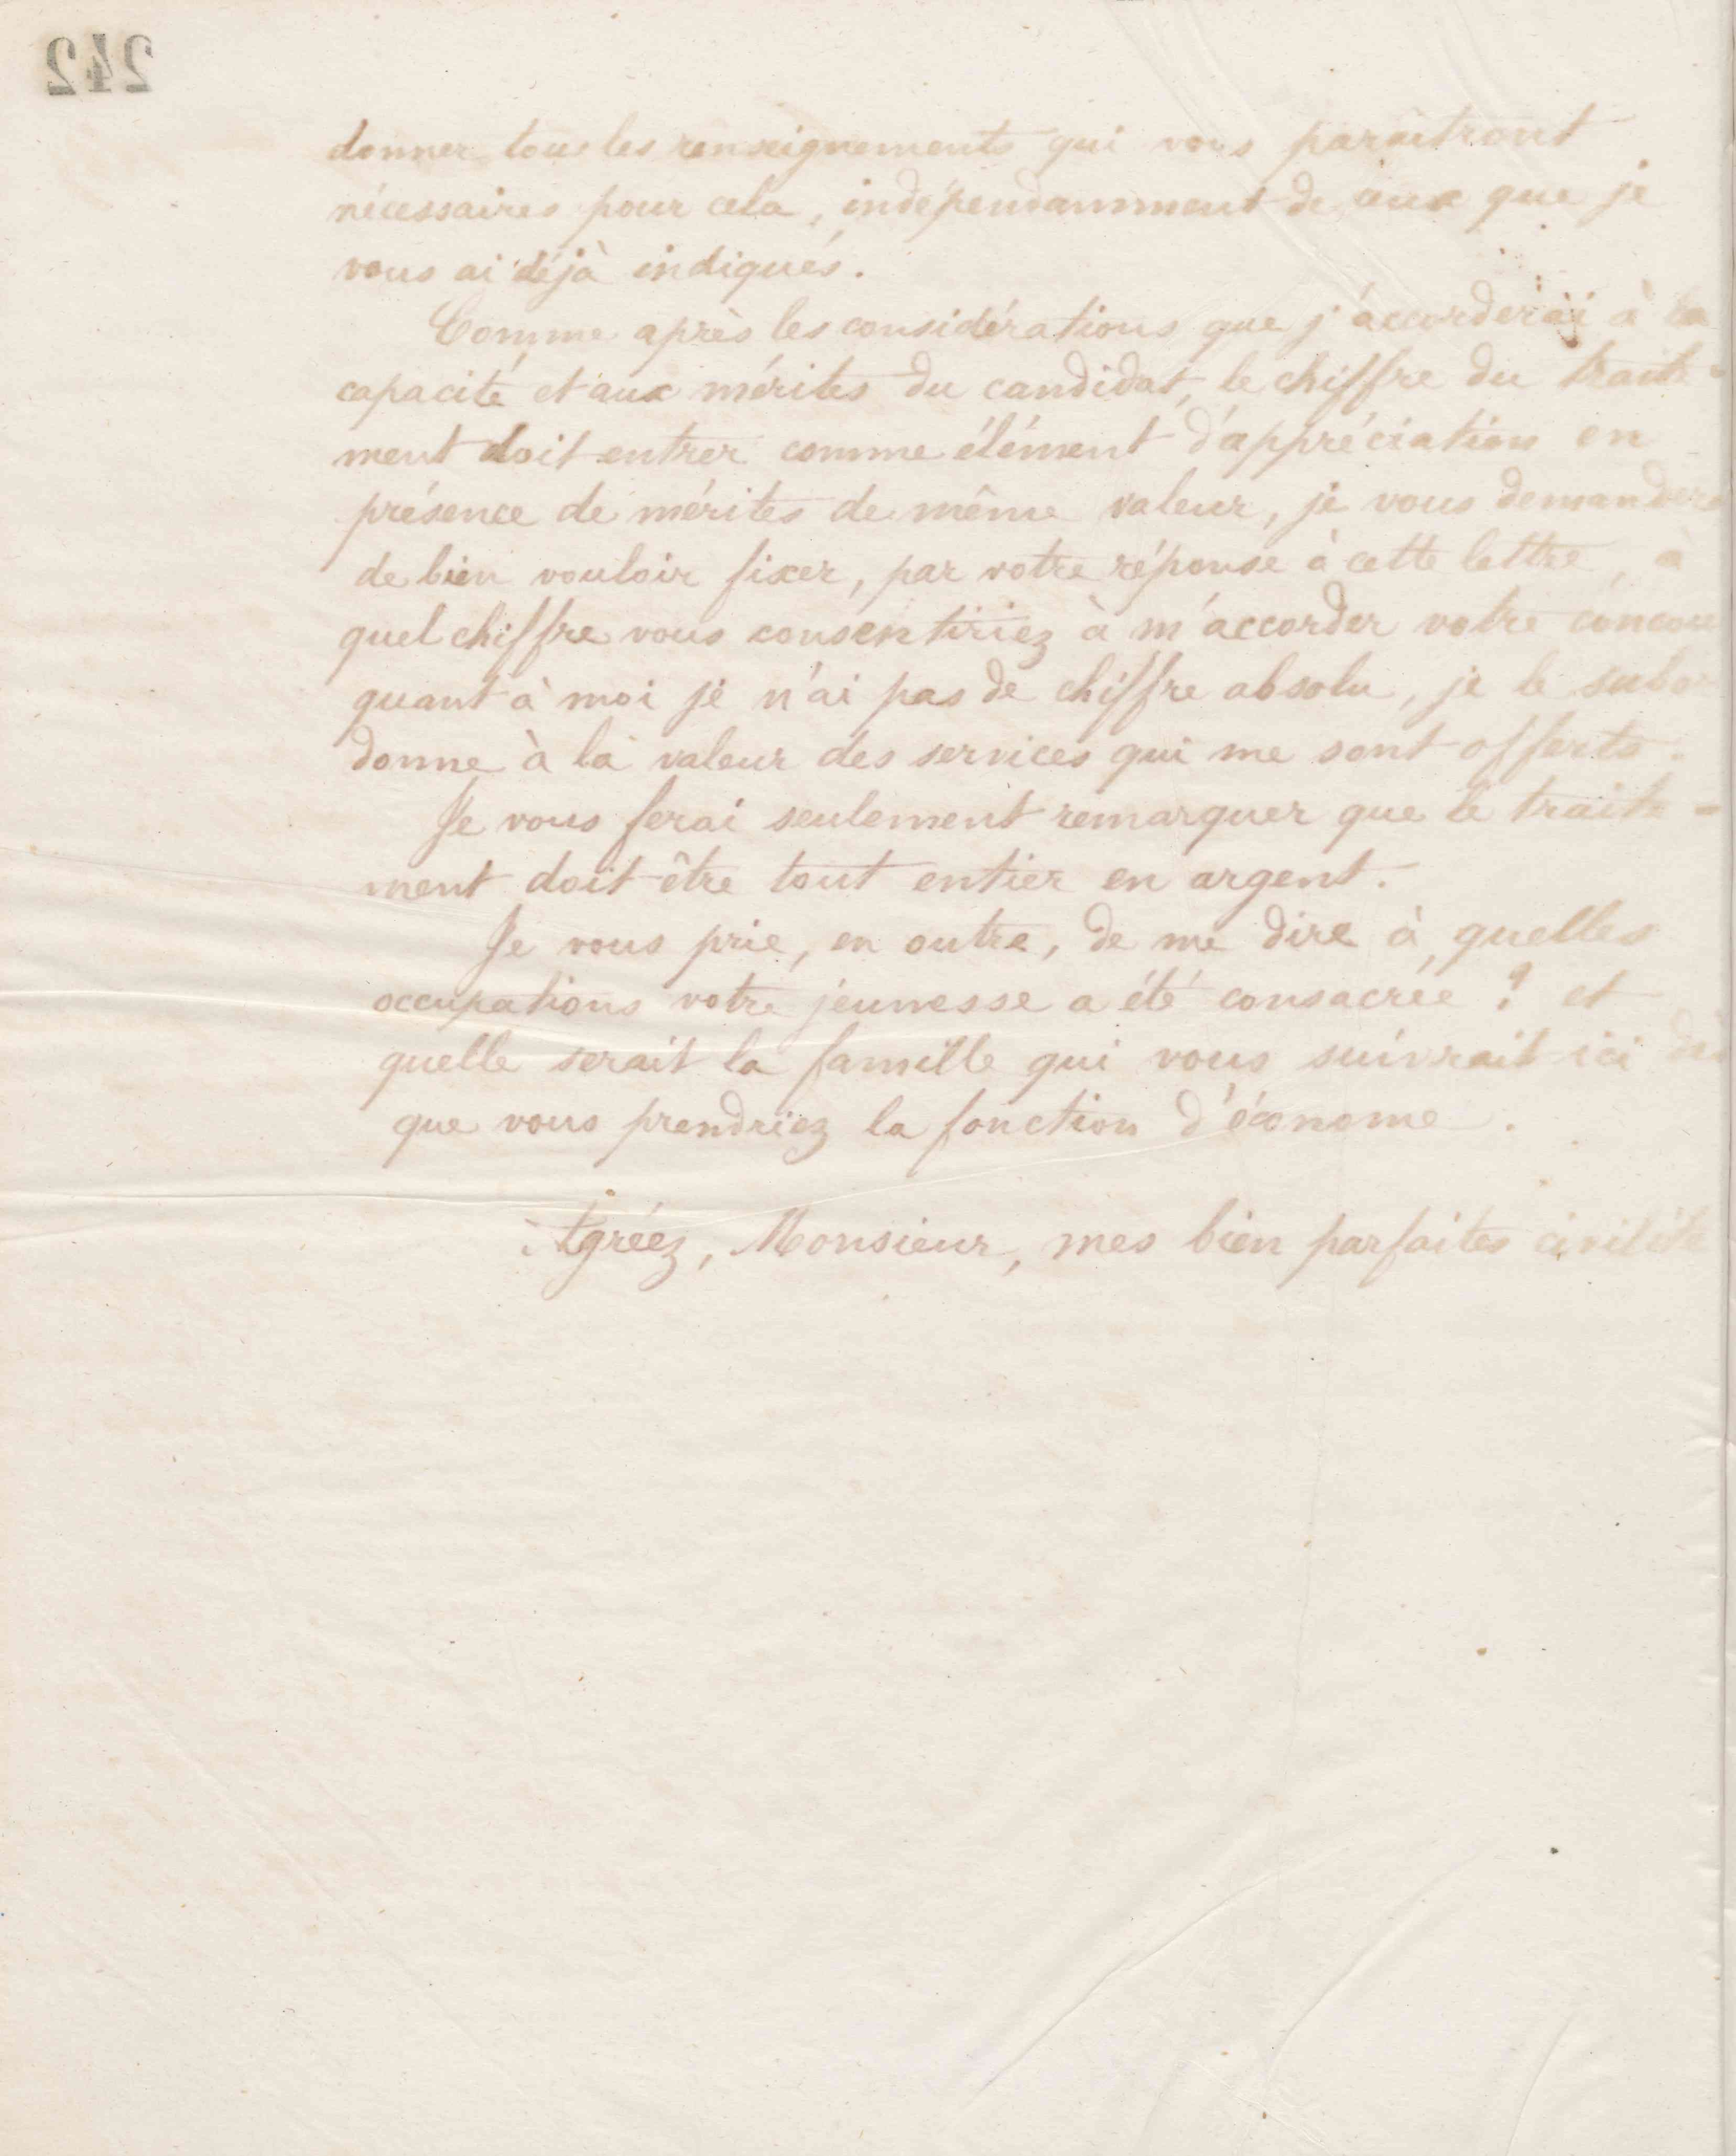 242
donner tous les renseignements qui vous paraîtront
nécessaires pour cela, indépendamment de ceux que je
vous ai déjà indiqués.
Comme après les considérations que j'accorderai à la
capacité et aux mérites du candidat, le chiffre du traite-
ment doit entrer comme élément d'appréciation en
présence de mérites de même valeur, je vous demandera
de bien vouloir fixer, par votre réponse à cette lettre, à
quel chiffre vous consentiriez à m'accorder votre concou
quant à moi je n'ai pas de chiffre absolu, je le subor
donne à la valeur des services qui me sont offerts.
Je vous ferai seulement remarquer que le traite-
ment doit être tout entier en argent.
Je vous prie, en outre, de me dire à quelles
occupations votre jeunesse a été consacrée ? et
quelle serait la famille qui vous suivrait ici
que vous prendriez la fonction d'économe.
Agréez, Monsieur, mes bien parfaites civilité